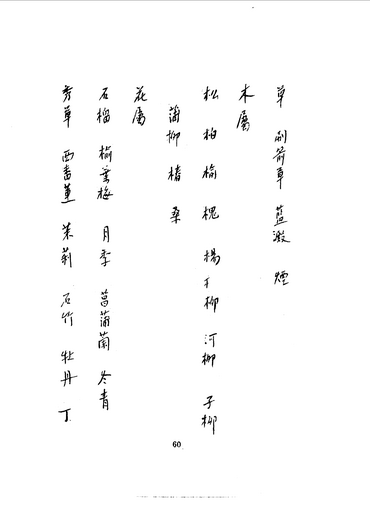 草 剐箭草 藍澱 煙
木屬
松 柏 榆 槐 楊 千柳 河柳 子柳
蒲柳 椿 桑
花屬
石榴 榆葉梅 月季 菖蒲蘭 冬青
秀草 西畨蓮 茉莉 石竹 牡丹 丁
60